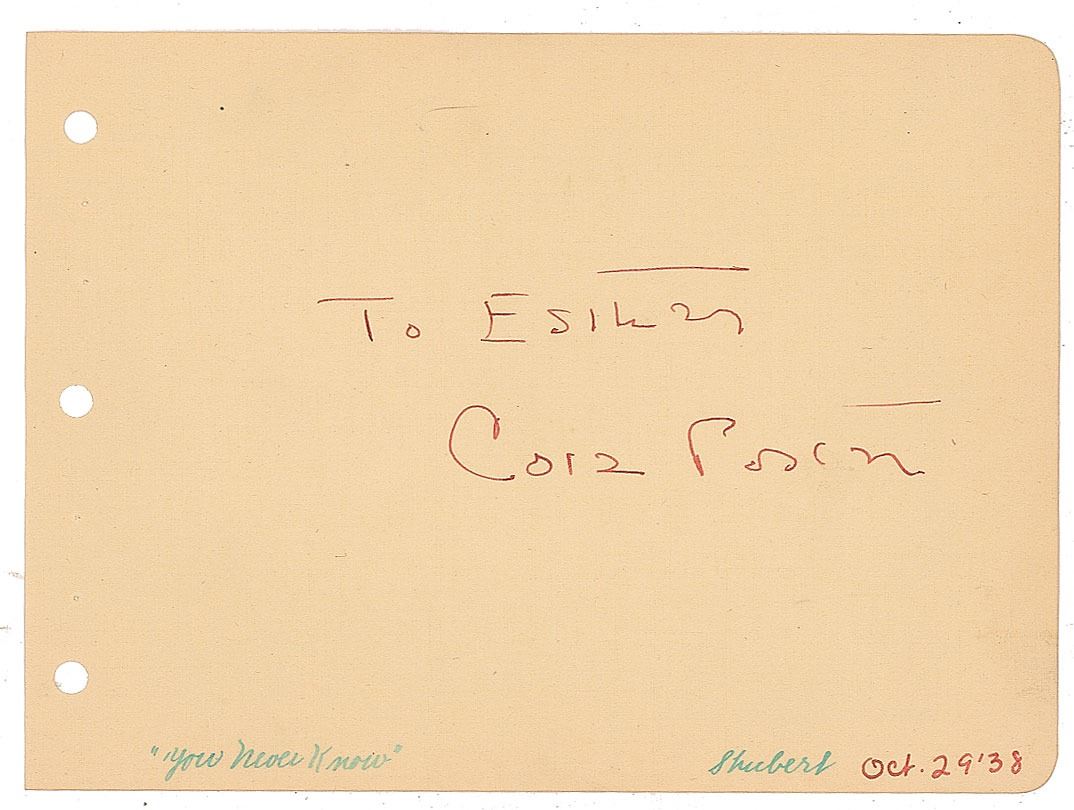 To Esther
Cora
"You Never Know" Shubert Oct. 29 '38